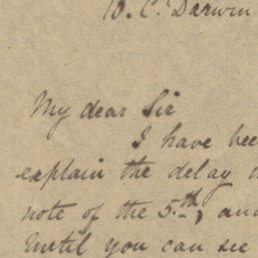 10. C. Darwin
My dear Sir
I have bee
explain the delay
note of the 5th, an
Until you can see